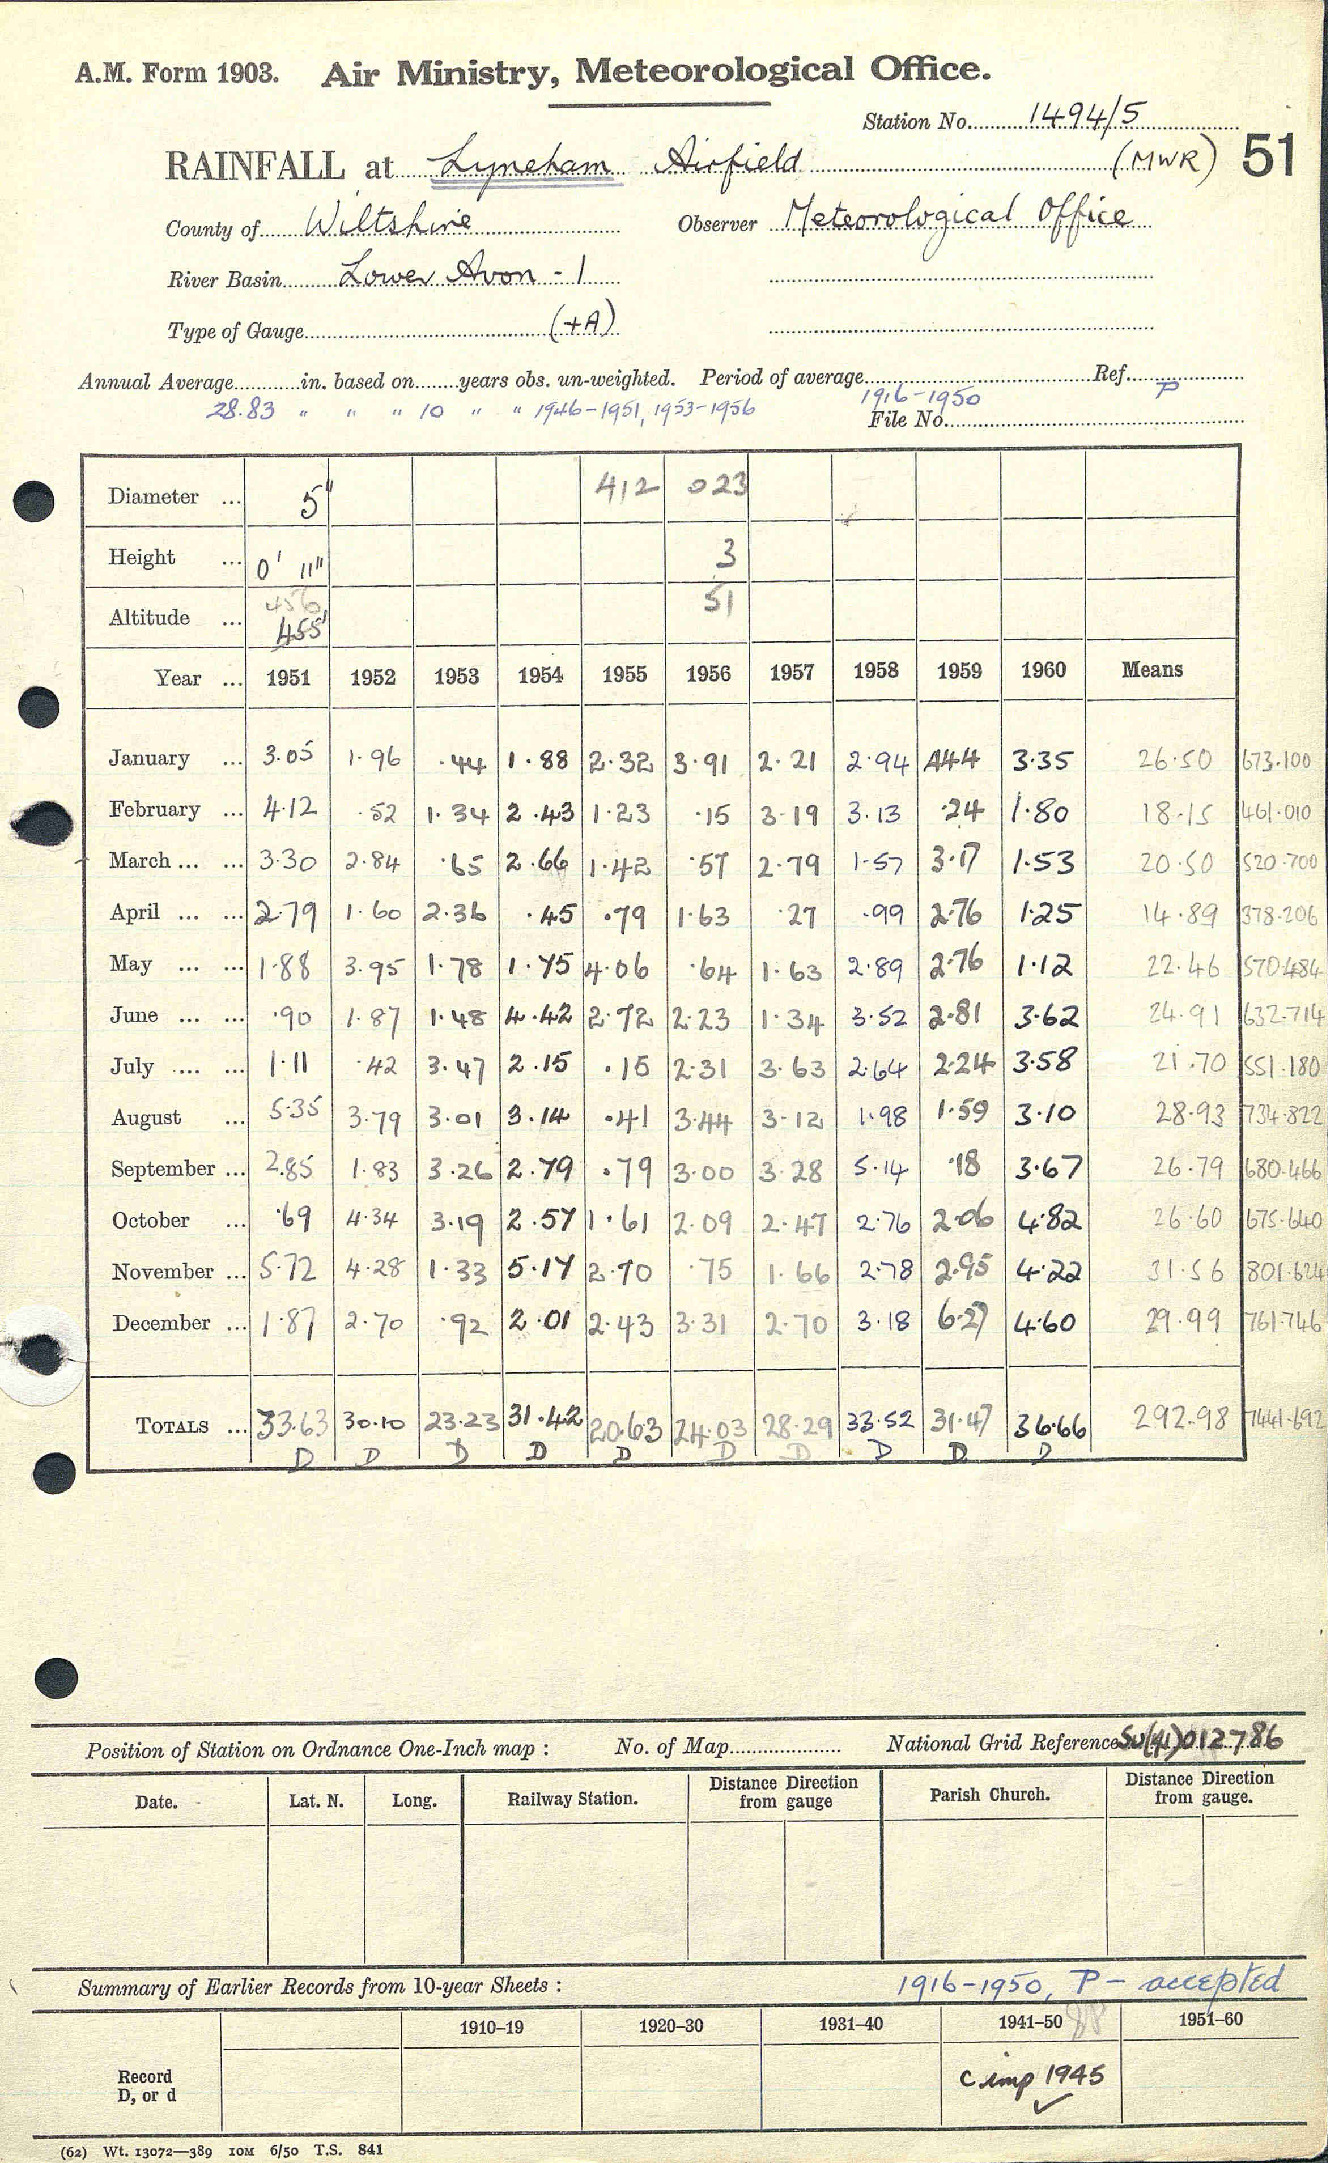 A.M. Form 1903. Air Ministry, Meteorological Office.
Station No. 1494/5
RAINFALL at Lyneham Airfield (MWR) 51
County of Wiltshire Observer Meteorological Office
River Basin Lower Avon - 1
Type of Gauge (+A)
Annual Average in. based on years obs. un-weighted. Period of average Ref.
28.83 " " " 10 " " 1946-1951, 1953-1956 1916-1950 P
File No.
Diameter ... 5" 412 023
Height ... 0' 11" 3
Altitude ... 456 51
455'
Year ... 1951 1952 1953 1954 1955 1956 1957 1958 1959 1960 Means
January ... 3.05 1.96 .44 1.88 2.32 3.91 2.21 2.94 4.44 3.35 26.50 673.100
February ... 4.12 .52 1.34 2.43 1.23 .15 3.19 3.13 .24 1.80 18.15 461.010
March ... ... 3.30 2.84 .65 2.66 1.42 .57 2.79 1.57 3.17 1.53 20.50 520.700
April ... ... 2.79 1.60 2.36 .45 .79 1.63 .27 .99 2.76 1.25 14.89 378.206
May ... ... 1.88 3.95 1.78 1.75 4.06 .64 1.63 2.89 2.76 1.12 22.46 570.484
June ... ... .90 1.87 1.48 4.42 2.72 2.23 1.34 3.52 2.81 3.62 24.91 632.714
July .... ... 1.11 .42 3.47 2.15 .15 2.31 3.63 2.64 2.24 3.58 21.70 551.180
August ... 5.35 3.79 3.01 3.14 .41 3.44 3.12 1.98 1.59 3.10 28.93 734.822
September ... 2.85 1.83 3.26 2.79 .79 3.00 3.28 5.14 .18 3.67 26.79 680.466
October ... .69 4.34 3.19 2.57 1.61 2.09 2.47 2.76 2.06 4.82 26.60 675.640
November ... 5.72 4.28 1.33 5.17 2.70 .75 1.66 2.78 2.95 4.22 31.56 801.624
December ... 1.87 2.70 .92 2.01 2.43 3.31 2.70 3.18 6.27 4.60 29.99 761.746
TOTALS ... 33.63 30.10 23.23 31.42 20.63 24.03 28.29 33.52 31.47 36.66 292.98 7441.692
D D D D D D D D D D
Position of Station on Ordnance One-Inch map : No. of Map National Grid Reference SU(41)012786
Date. Lat. N. Long. Railway Station. Distance Direction from gauge Parish Church. Distance Direction from gauge.
Summary of Earlier Records from 10-year Sheets : 1916-1950, P - accepted
1910-19 1920-30 1931-40 1941-50 88 1951-60
Record
D, or d
C imp 1945
✓
(62) Wt. 13072—389 10M 6/50 T.S. 841